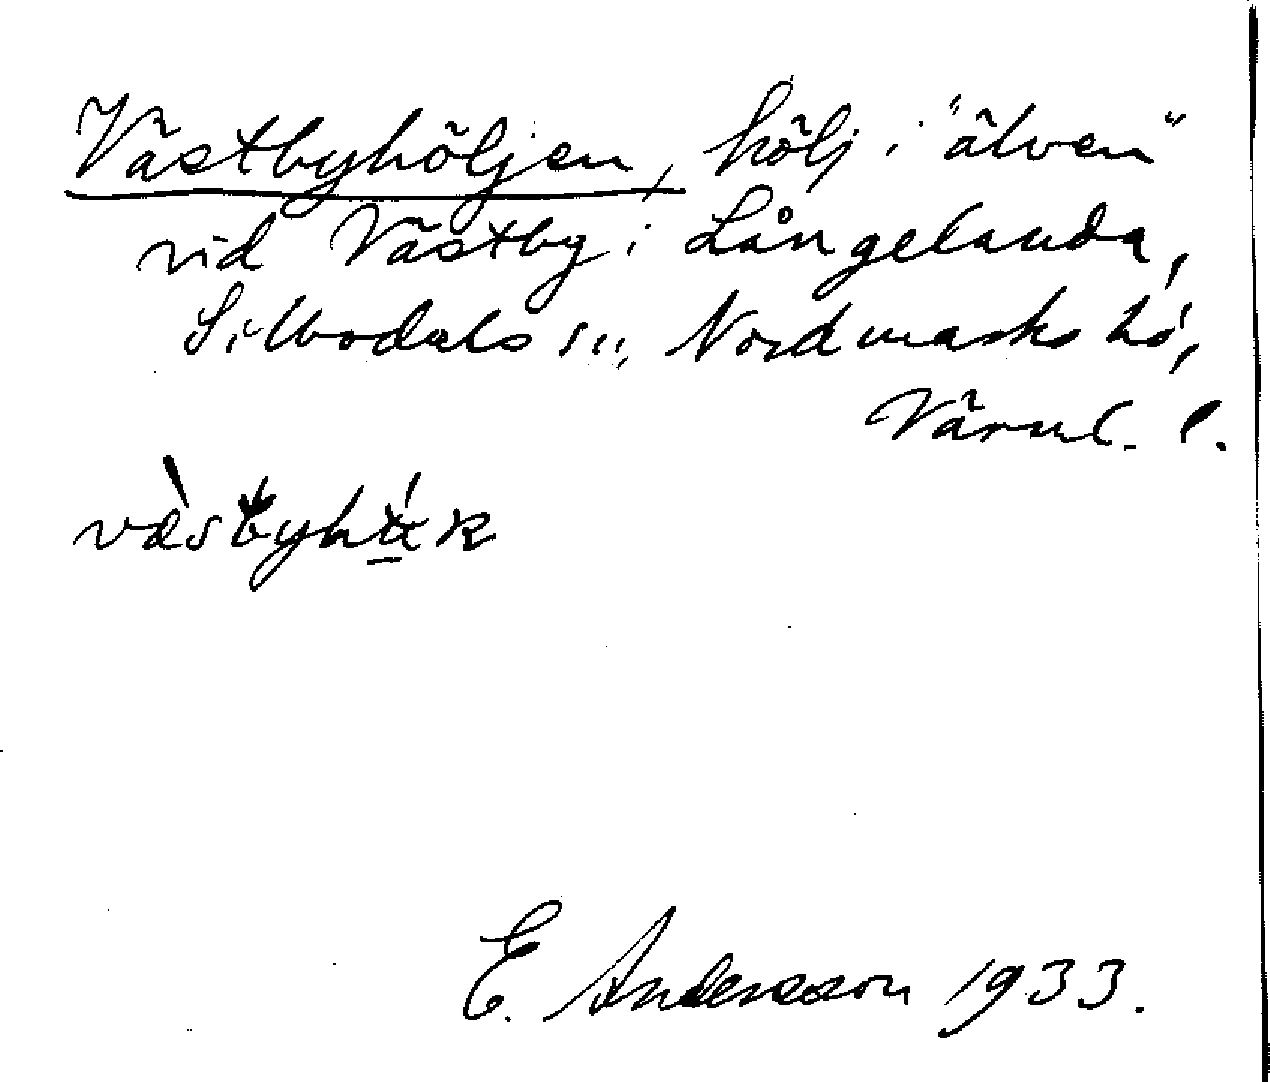 Västbyhöljen, hölj i "älven"
vid Västby i Långelanda,
Silbodals sn, Nordmarks hd,
Värml. l.
E. Andersson 1933.